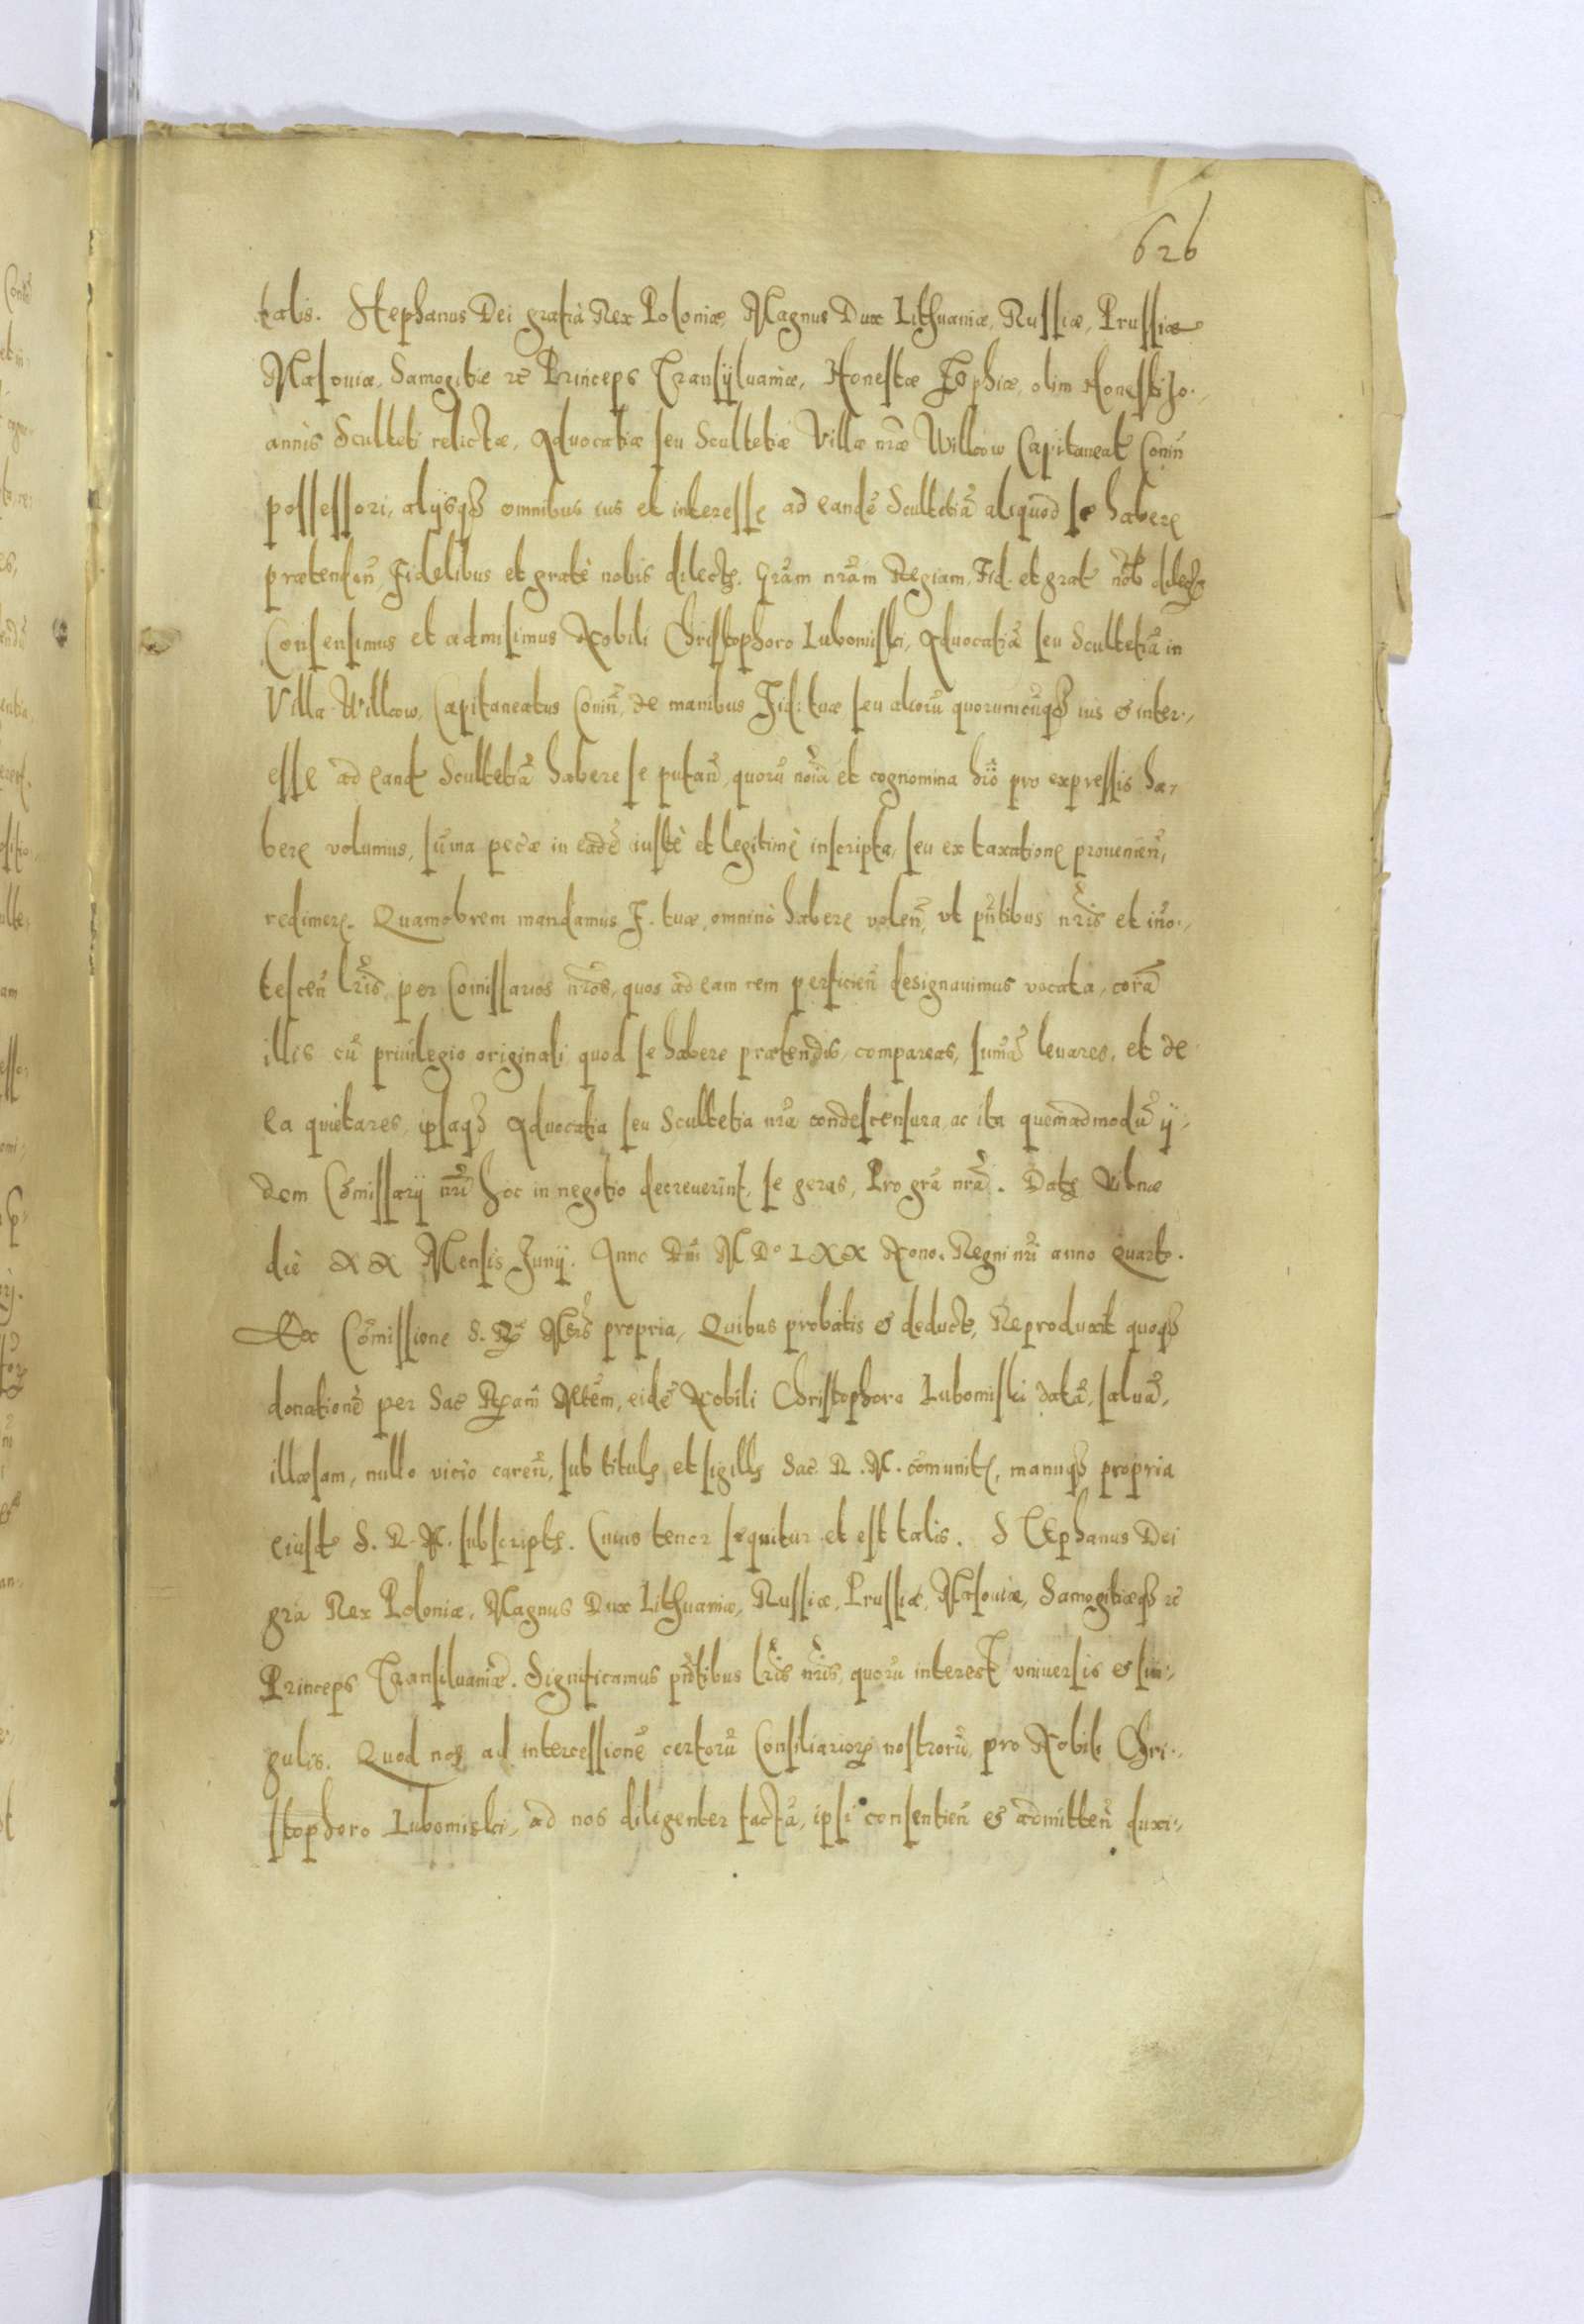 626
talis. Stephanus Dei gratia Rex Poloniæ, Magnus Dux Lithuaniæ, Russiæ, Prussiæ
Masouiæ, Samogitiæ rc̃ Princeps Transÿluaniæ, Honestæ Sophiæ, olim Honesti Jo-
annis Sculteti relictæ, Aduocatiæ seu Scultetiæ Villæ nr̃æ Willcow Capitaneat Conin̄
possessori, alijsq3 omnibus ius et interesse ad eandē Scultetiā aliquod se habere
prætenden̄, Fidelibus et gratè nobis dilectꝭ. Grām nr̄am Regiam. Fid. et grat nōb dilectꝭ
Consensimus et admisimus Nobili Christophoro Lubomiski, Aduocatiā seu Scultetiā in
Villa Willcow, Capitaneatus Conin̄, de manibus Fid: tuæ seu aliorū quorumcūq3 ius & inter-
esse ad eand Scultetiā habere se putan̄, quorū noīa et cognomina hīc pro expressis ha-
bere volumus, sūma pecæ in eādē iustè et legitimè inscripta, seu ex taxatione prouenien̄,
redimere. Quamobrem mandamus F. tuæ, omninò habere volen̄, vt pn̄tibus nr̄is et iño-
tescen̄ lr̄is, per Comissarios nr̄os, quos ad eam rem perficien̄ designauimus vocata, corā
illis cū priuilegio originali quod se habere prætendis, compareas, sumā leuares, et de
ea quietares, ipsaq3 Aduocatia seu Scultetia nr̄a condescensura, ac ita quemadmodū ij-
dem Cōmissarij nr̄i hoc in negotio decreuerint, se geras, Pro grā nr̄a. Datꝭ Vilnæ
die XX Mensis Junij. Anno Dm̄i M.D° LXX Nono. Regni nr̄i anno Quarto.
Ex Cōmissione S. R. Mtis propria, Quibus probatis & deductꝭ, Reproduxit quoq3
donationē per Sac Rgam̄ Mtēm, eidē Nobili Christophoro Lubomiski datā, saluā,
illæsam, nullo vicio caren̄, sub titulꝭ et sigillꝭ Sac. R. M. cōmunitꝭ, manuq3 propria
eiusd S. R. M. subscriptꝭ. Cuius tenor sequitur et est talis. STephanus Dei
gr̄a Rex Poloniæ, Magnus Dux Lithuaniæ, Russiæ, Prussiæ, Masouiæ, Samogitiæq3 rc̃
Princeps Transiluaniæ. Significamus pn̄tibus lr̄is nr̄is, quorū interest vniuersis & sin-
gulis. Quod nos ad intercessionē certorū Consiliarioꝝ nostrorū, pro Nobili Chri-
stophoro Lubomiski, ad nos diligenter factā, ipsi consentien̄ & admitten̄ duxi-